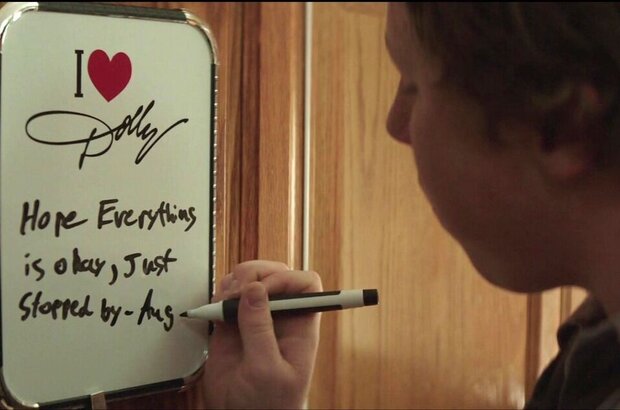 I ❤
Dolly
Hope Everything
is okay, Just
Stopped by - Aug